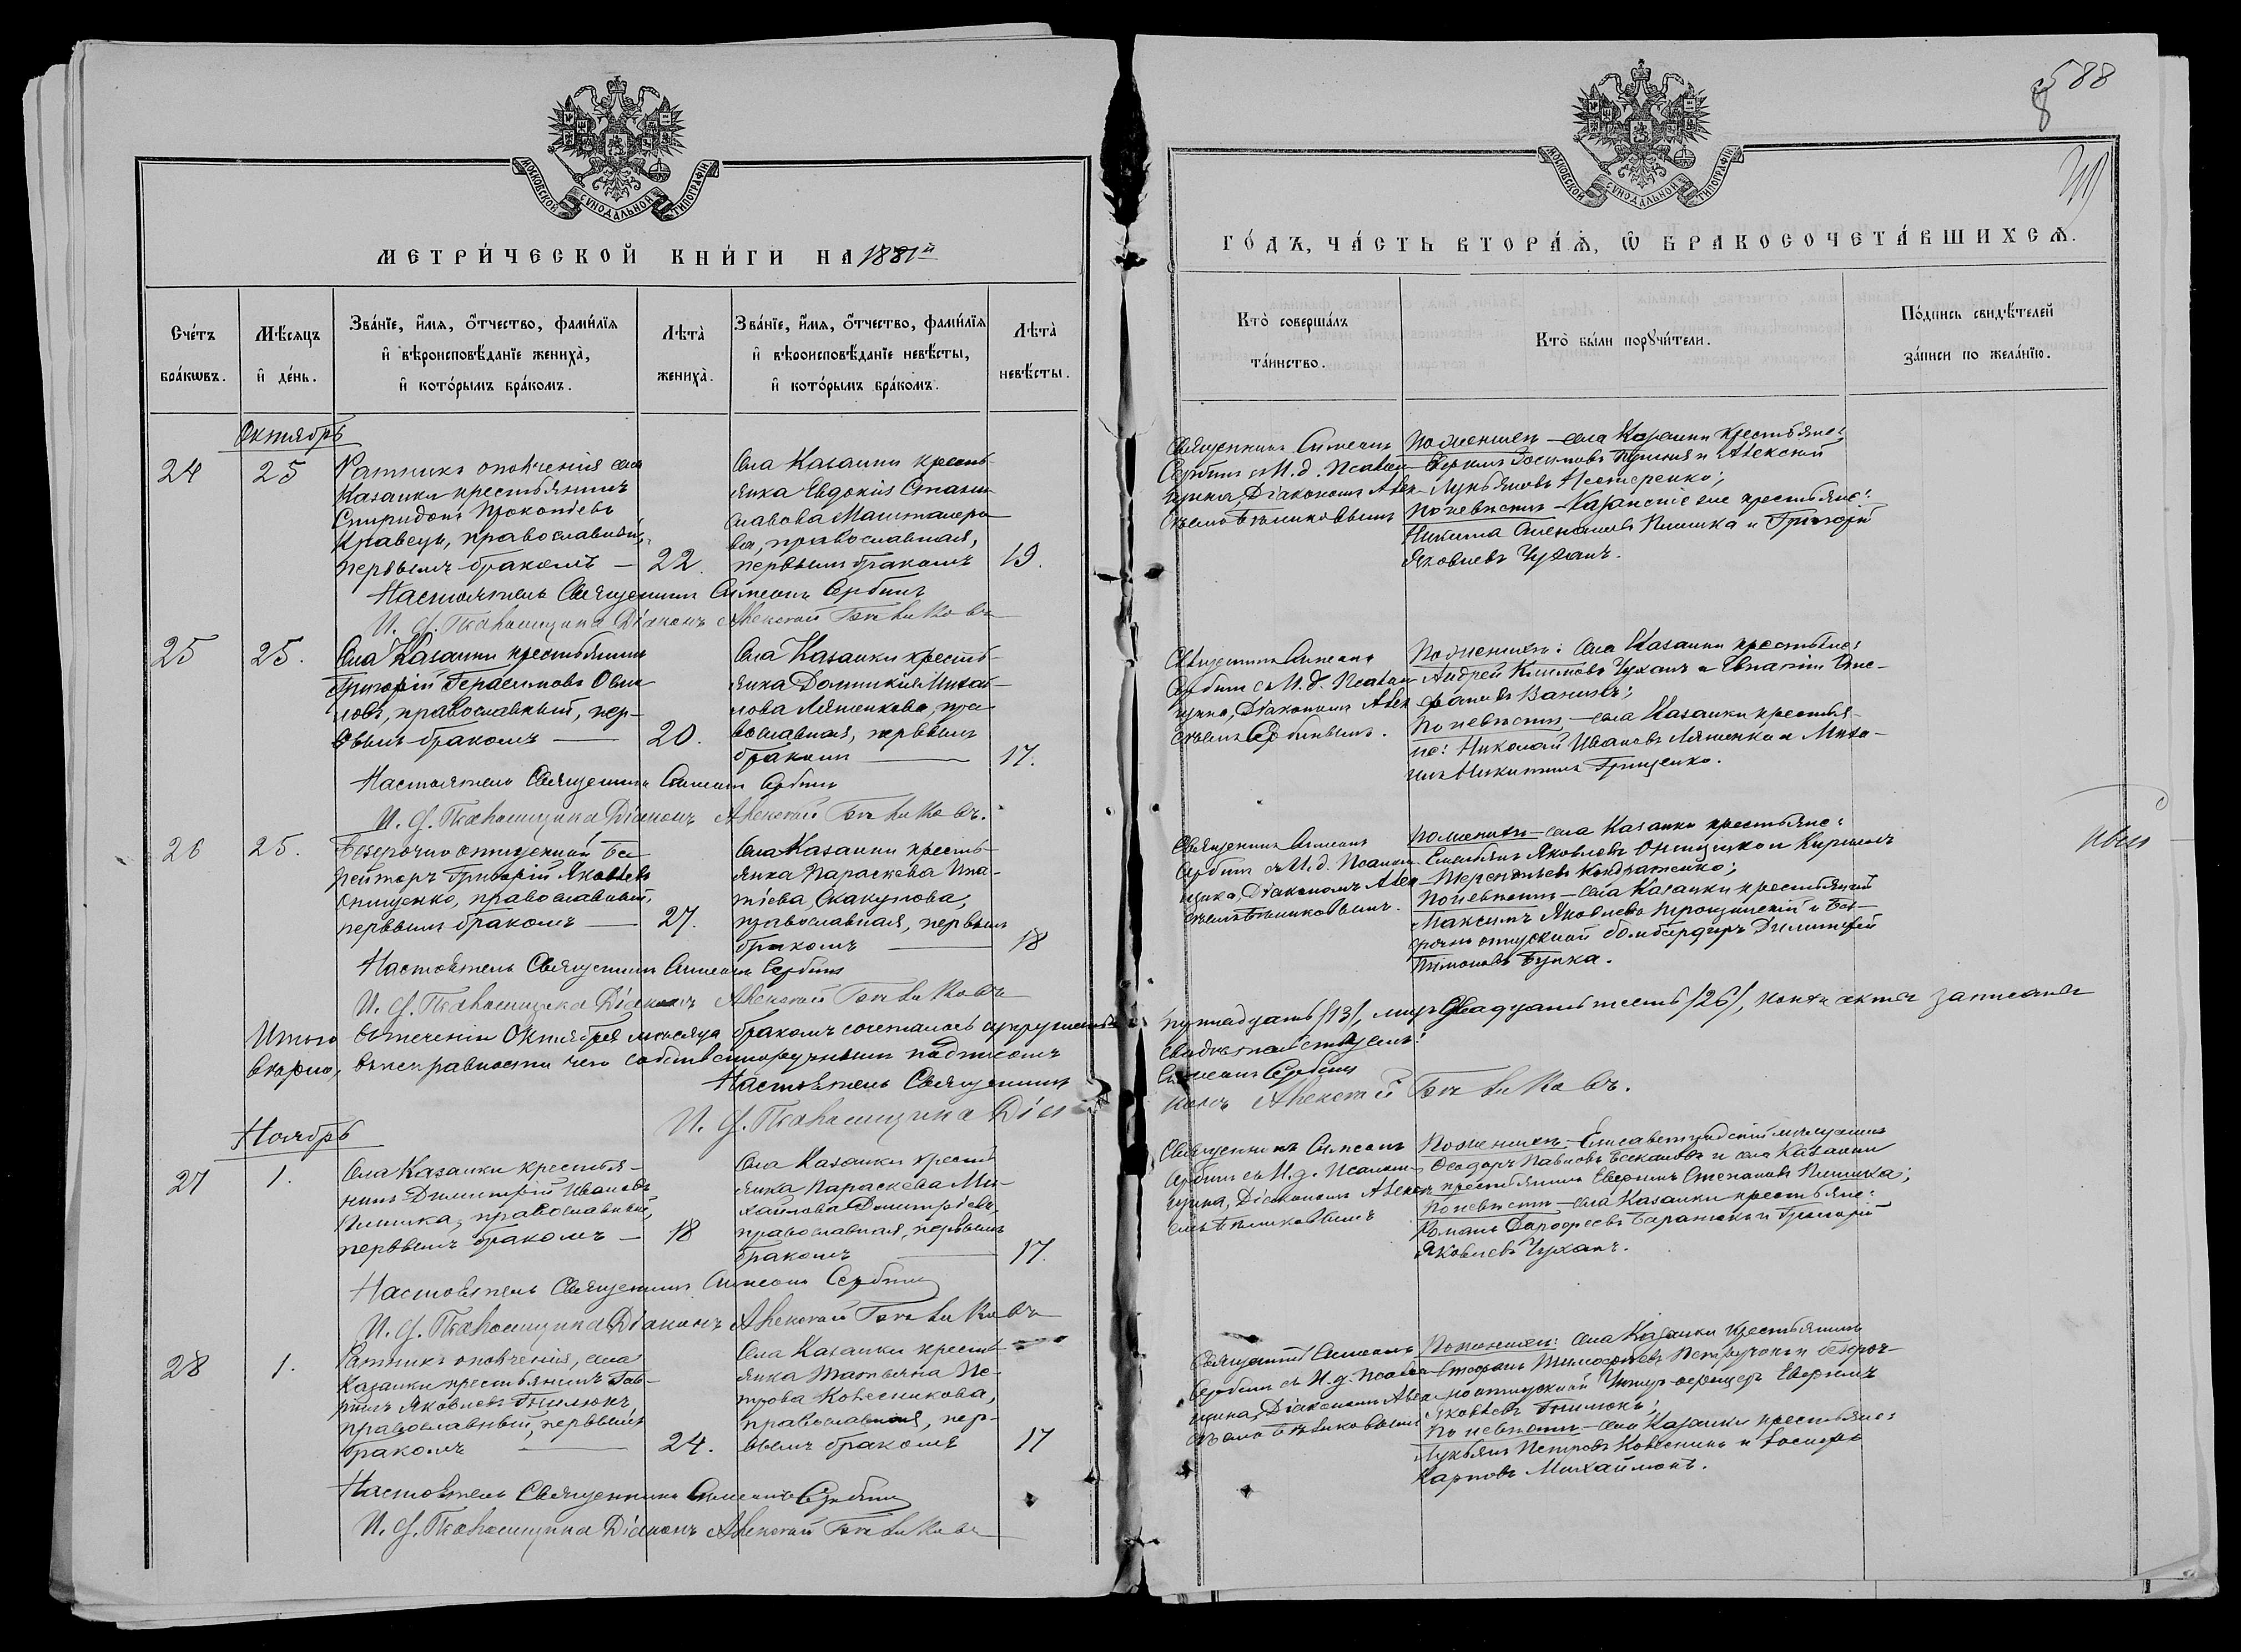 588
МОСКОВСКОЙ СѴНОДАЛЬНОЙ ТИПОГРАФІИ
МОСКОВСКОЙ СѴНОДАЛЬНОЙ ТИПОГРАФІИ
МЕТРИ́ЧЕСКОЙ КНИ́ГИ НА 1881й
ГО́ДЪ, ЧА́СТЬ ВТОРА́Ѧ, Ѡ БРАКОСОЧЕТА́ВШИХСѦ.
Сче́тъ бра́кωвъ.
Мѣ́сѧцъ и де́нь.
Зва́нїе, и́мѧ, о́тчество, фами́лїѧ
и вѣроисповѣ́данїе жениха̀,
и кото́рымъ бра́комъ.
Лѣта̀ жениха̀.
Зва́нїе, и́мѧ, о́тчество, фами́лїѧ
и вѣроисповѣ́данїе невѣ́сты,
и кото́рымъ бра́комъ.
Лѣта̀ невѣ́сты.
Кто̀ соверша́лъ
та́инство.
Кто̀ бы́ли порꙋчи́тели.
По́дпись свидѣ́телей
за́писи по жела́нїю.
Октябрь
24 25
Ратникъ ополченія села
Казанки крестьянинъ
Спиридонъ Прокопіевъ
Кравецъ, православный,
первымъ бракомъ — 22.
Села Казанки кресть-
янка Евдокія Стани-
славова
ва, православная,
первымъ бракомъ 19.
Священникъ Симеонъ
Сербинъ съ И. д. Псалом-
щика, Діакономъ Алек-
сѣемъ Бѣликовымъ
По женихѣ — села Казанки крестьяне:
и Алексѣй
Лукьяновъ Нестеренко;
По невѣстѣ — Казанскіе крестьяне:
Никита Пишка и Григорій
Яковлевъ Чуханъ.
Настоятель Священникъ Симеонъ Сербинъ
И. д. Псаломщика Діаконъ Алексѣй Бѣликовъ
25 25.
Села Казанки крестьянинъ
Григорій Герасимовъ
православный, пер-
вымъ бракомъ — 20.
Села Казанки кресть-
янка Домникія Михай-
лова Ляшенкова, пра-
вославная, первымъ
бракомъ — 17.
Священникъ Симеонъ
Сербинъ съ И. д. Псалом-
щика, Діакономъ Алек-
сѣемъ
По женихѣ: села Казанки крестьяне:
Андрей Климовъ Чуханъ и Евлагій
По невѣстѣ — села Казанки крестья-
не: Николай Ивановъ Ляшенко и Миха-
илъ Никитинъ Грищенко.
Настоятель Священникъ Симеонъ Сербинъ
И. д. Псаломщика Діаконъ Алексѣй Бѣликовъ.
26 25.
Безсрочно отпускной
Григорій Яковлевъ
Онищенко, православный,
первымъ бракомъ — 27.
Села Казанки кресть-
янка Параскева Ипа-
тіева, Скакунова,
православная, первымъ
бракомъ — 18
Священникъ Симеонъ
Сербинъ съ И. д. Псалом-
щика, Діакономъ Алек-
сѣемъ Бѣликовымъ.
По женихѣ — села Казанки крестьяне:
Емельянъ Яковлевъ Онищенко и Кириллъ
Терентьевъ Кондратенко;
По невѣстѣ — села Казанки крестьянинъ
Максимъ Яковлевъ и Без-
срочно отпускной бомбардиръ Димитрій
Тимоновъ Буцка.
Настоятель Священникъ Симеонъ Сербинъ
И. д. Псаломщика Діаконъ Алексѣй Бѣликовъ
Итого въ теченіи Октября мѣсяца бракомъ сочеталось супружествъ
тринадцать /13/, лицъ двадцать шесть /26/, акты записаны
вѣрно, въ исправности чего собственноручнымъ подписомъ свидѣтельствуемъ:
Настоятель Священникъ Симеонъ Сербинъ
И. д. Псаломщика Діаконъ Алексѣй Бѣликовъ.
Ноябрь
27 1.
Села Казанки крестья-
нинъ Димитрій Ивановъ
Пишка, православный,
первымъ бракомъ — 18
Села Казанки кресть-
янка Параскева Ми-
хайлова Димитріева,
православная, первымъ
бракомъ — 17.
Священникъ Симеонъ
Сербинъ съ И. д. Псалом-
щика, Діакономъ Алек-
сѣемъ Бѣликовымъ
По женихѣ — Елисаветградскій мѣщанинъ
Ѳеодоръ Павловъ и села Казанки
крестьянинъ Евфимъ Степановъ Пишка;
По невѣстѣ — села Казанки крестьяне:
Романъ Дорофеевъ и Григорій
Яковлевъ Чуханъ.
Настоятель Священникъ Симеонъ Сербинъ
И. д. Псаломщика Діаконъ Алексѣй Бѣликовъ
28 1.
Ратникъ ополченія, села
Казанки крестьянинъ Гав-
ріилъ Яковлевъ
православный, первымъ
бракомъ — 24.
Села Казанки кресть-
янка Татьяна Пе-
трова Колесникова,
православная, пер-
вымъ бракомъ 17
Священникъ Симеонъ
Сербинъ съ И. д. Псалом-
щика, Діакономъ Алек-
сѣемъ Бѣликовымъ
По женихѣ: села Казанки крестьянинъ
Стефанъ Тимофѣевъ и безсроч-
но отпускной Унтеръ-офицеръ Евфимъ
Яковлевъ
По невѣстѣ — села Казанки крестьяне:
Лукьянъ Петровъ Колесникъ и Іосифъ
Карповъ Михайлюкъ.
Настоятель Священникъ Симеонъ Сербинъ
И. д. Псаломщика Діаконъ Алексѣй Бѣликовъ